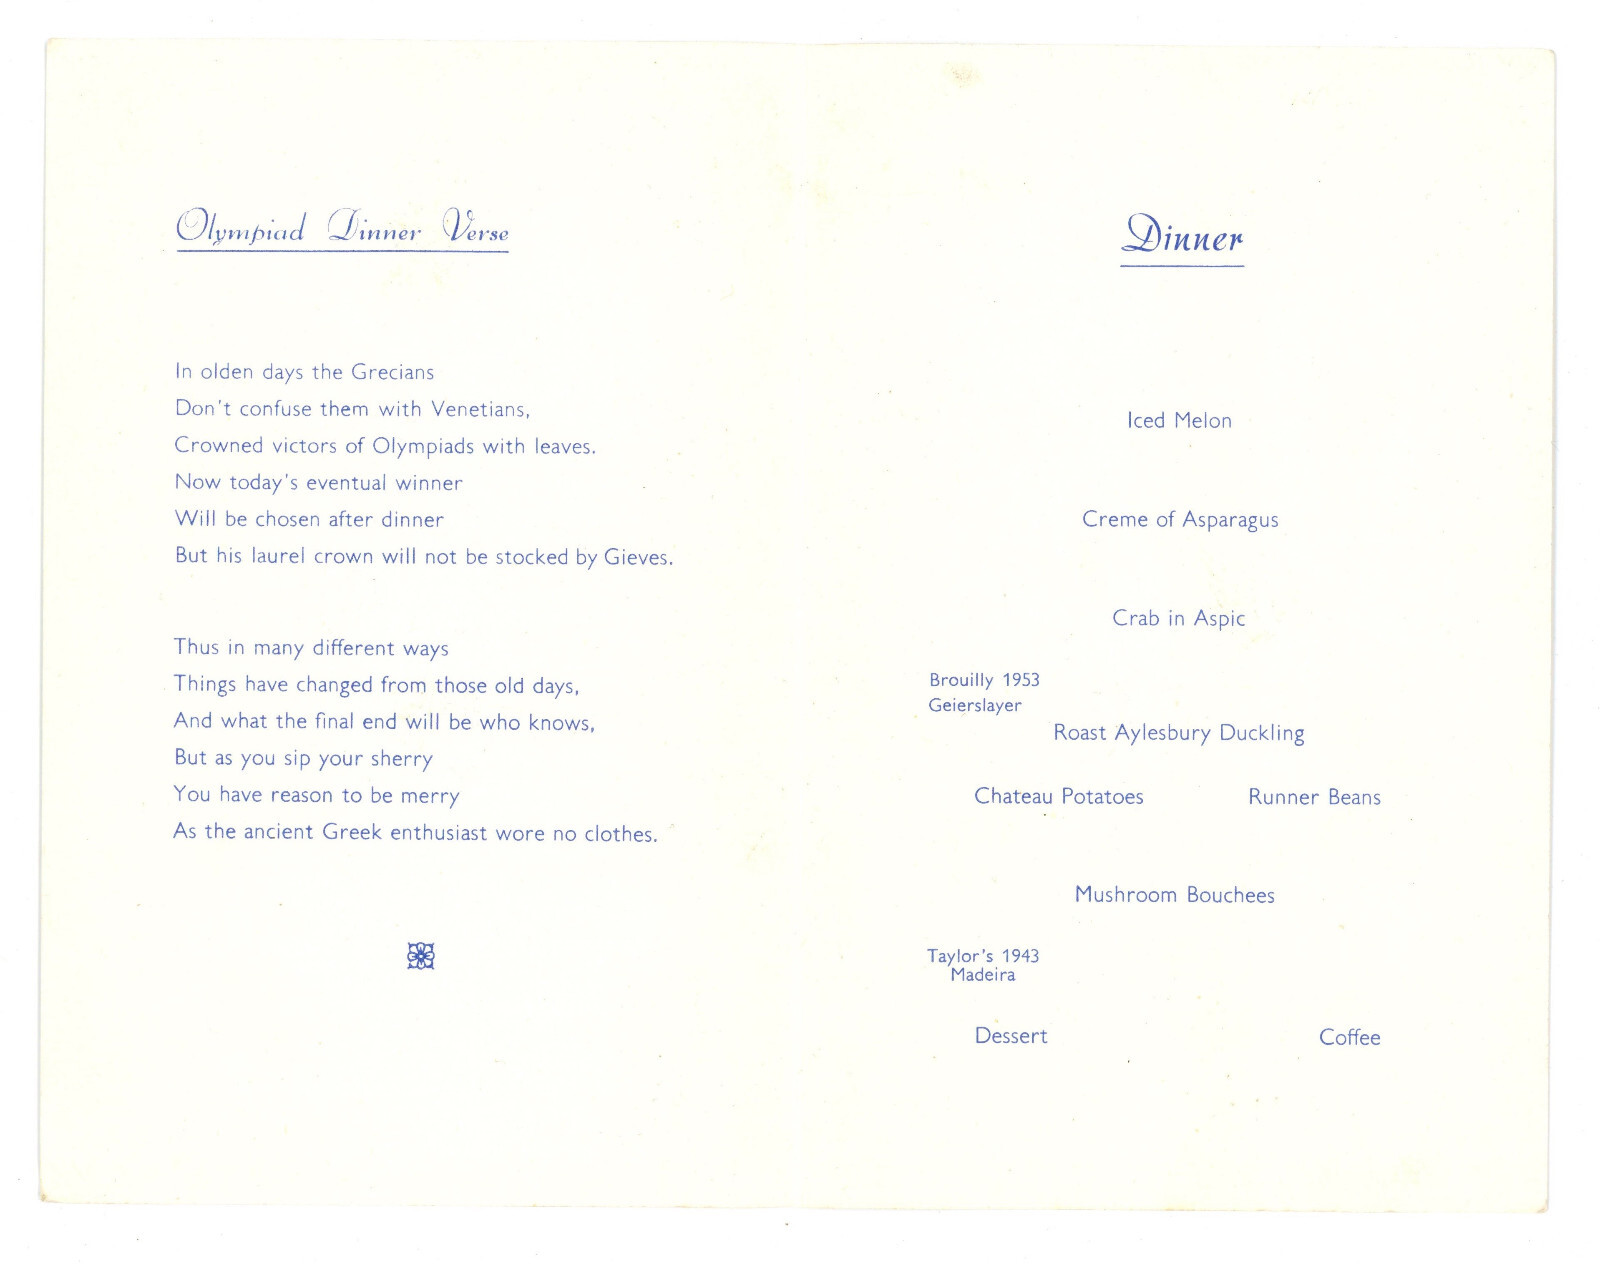 Olympiad Dinner Verse
In olden days the Grecians
Don't confuse them with Venetians,
Crowned victors of Olympiads with leaves.
Now today's eventual winner
Will be chosen after dinner
But his laurel crown will not be stocked by Gieves.
Thus in many different ways
Things have changed from those old days,
And what the final end will be who knows,
But as you sip your sherry
You have reason to be merry
As the ancient Greek enthusiast wore no clothes.
Dinner
Iced Melon
Creme of Asparagus
Crab in Aspic
Brouilly 1953
Geierslayer
Roast Aylesbury Duckling
Chateau Potatoes Runner Beans
Mushroom Bouchees
Taylor's 1943
Madeira
Dessert Coffee